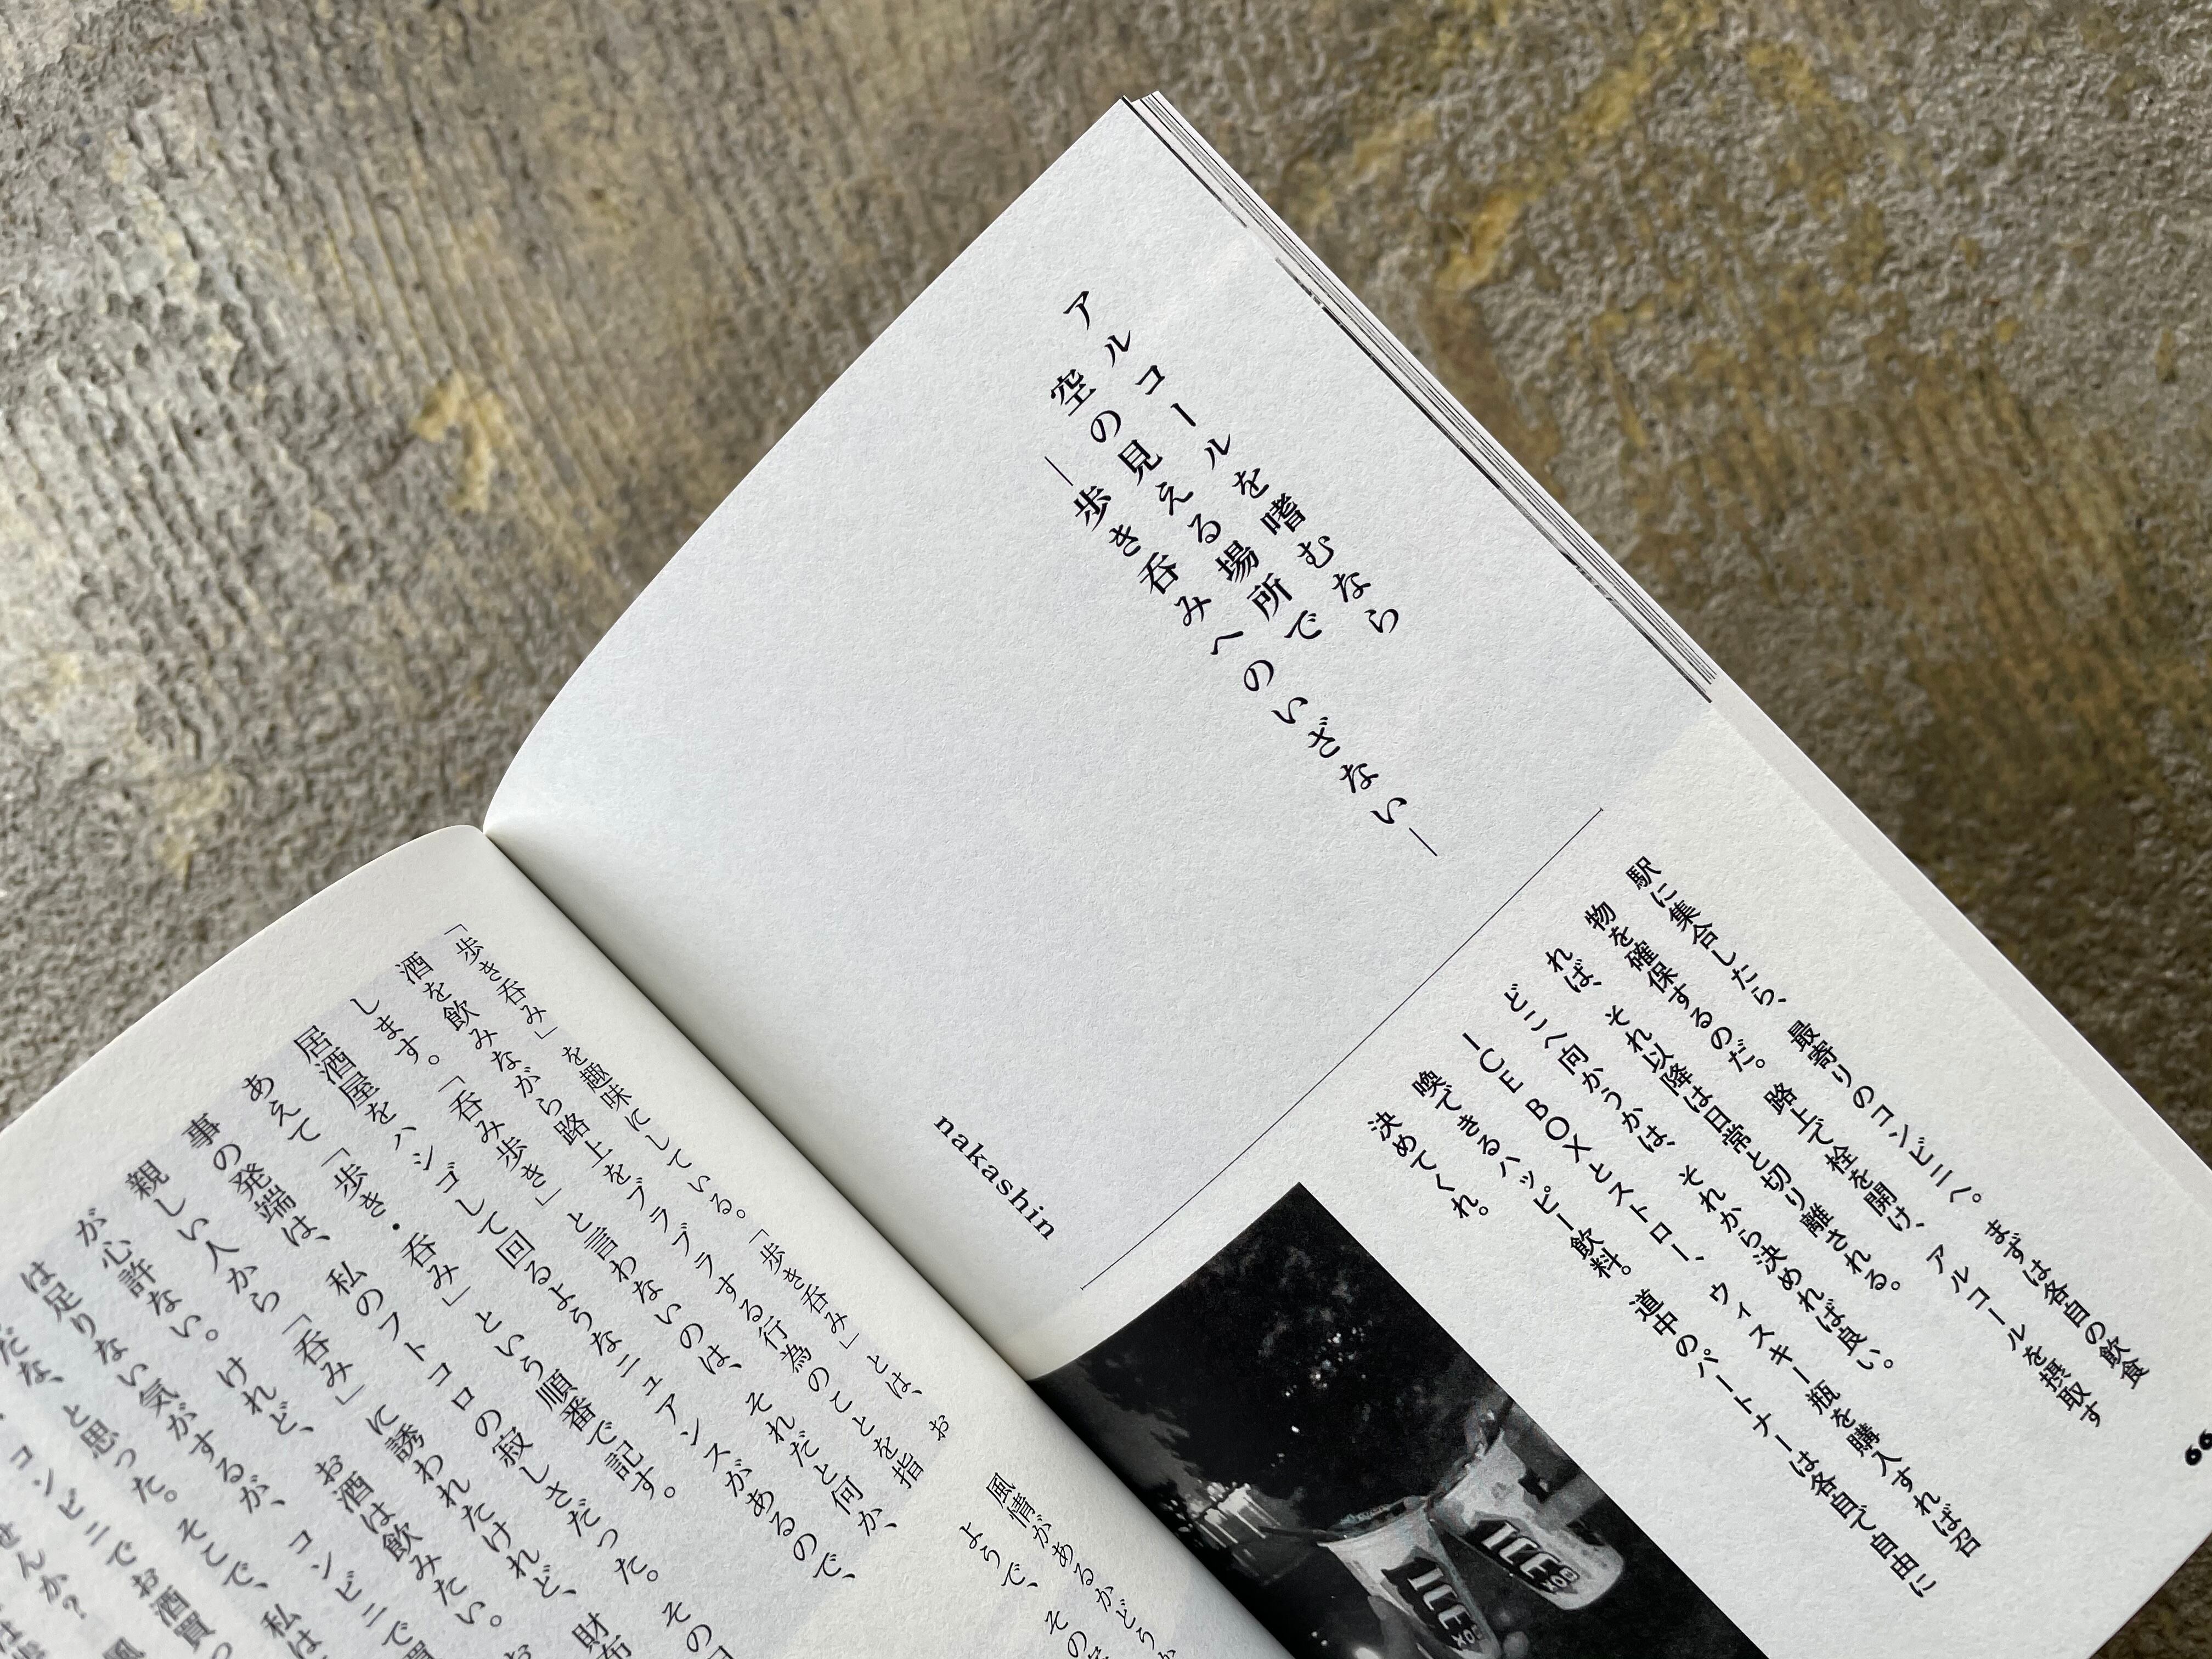 アルコールを嗜むなら
空の見える場所で
―歩き呑みへのいざない―
nakashin
駅に集合したら、最寄りのコンビニへ。まずは各自の飲食
物を確保するのだ。路上で栓を開け、アルコールを摂取す
れば、それ以降は日常と切り離される。
どこへ向かうかは、それから決めれば良い。
ICE BOXとストロー、ウィスキー瓶を購入すれば召
喚できるハッピー飲料。道中のパートナーは各自で自由に
決めてくれ。
ICE
BOX
ICE
BOX
「歩き呑み」を趣味にしている。「歩き呑み」とは、お
酒を飲みながら路上をブラブラする行為のことを指
します。「呑み歩き」と言わないのは、それだと何か、
居酒屋をハシゴして回るようなニュアンスがあるので、
あえて「歩き・呑み」という順番で記す。
事の発端は、私のフトコロの寂しさだった。その
親しい人から「呑み」に誘われたけれど、財布
が心許ない。けれど、お酒は飲みたい。
は足りない気がするが、コンビニで買
だな、と思った。そこで、私は
コンビニでお酒買
せんか？
風情があるかどうか
ようで、その